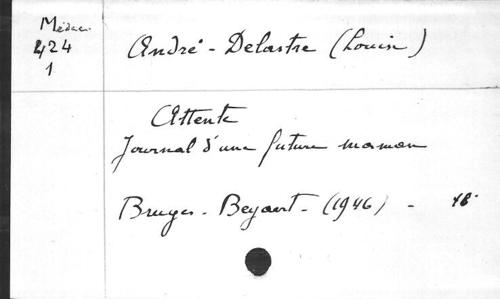 Médec.
424
1
André-Delastre (Louise)
Attente
Journal d'une future maman
Bruges - Beyaert - (1946) - 18°